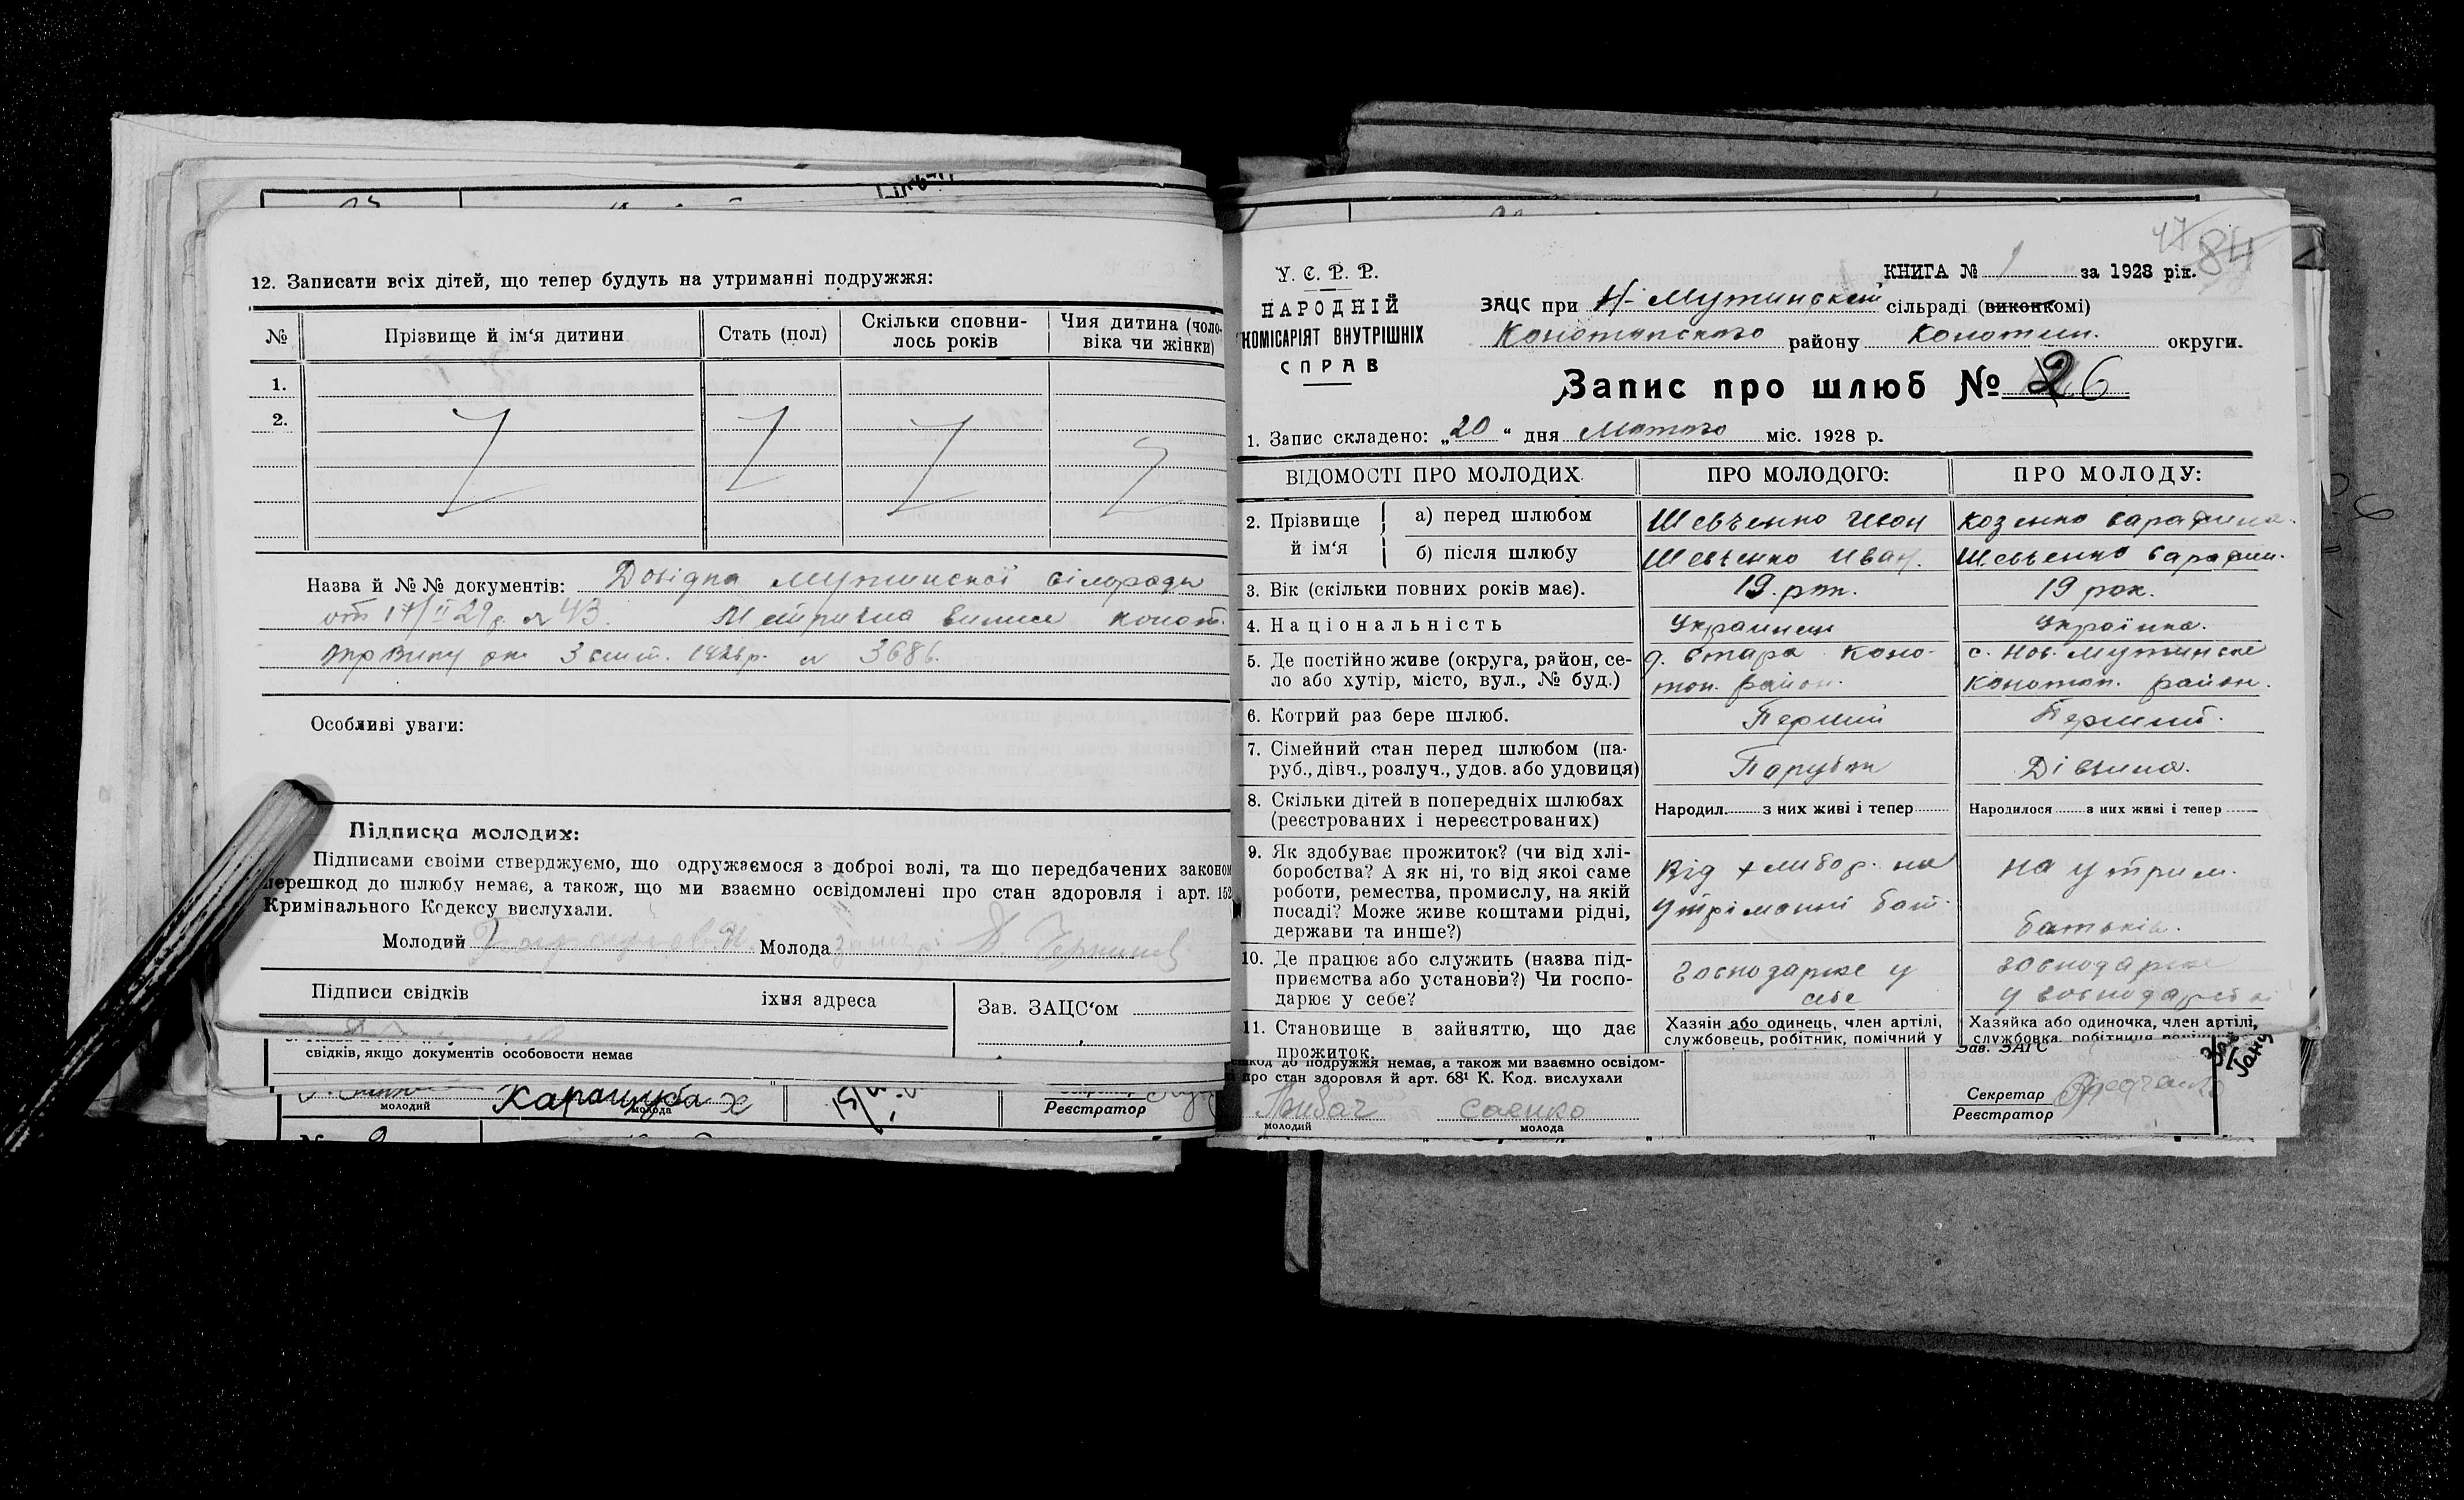 12. Записати всіх дітей, що тепер будуть на утриманні подружжя:
№
Прізвище й ім'я дитини
Стать (пол)
Скільки сповни-
лось років
Чия дитина (чоло-
віка чи жінки)
1.
2.
Назва й №№ документів: Довідка Мутинської сілради
от 17/II 29 р. № 43. Метрична виписе коноп.
3686.
Особливі уваги:
Підписка молодих:
Підписами своіми стверджуємо, що одружаємося з доброі волі, та що передбачених законом
перешкод до шлюбу немає, а також, що ми взаємно освідомлені про стан здоровля і арт. 152
Кримінального Кодексу вислухали.
Молодий Молода
Підписи свідків
іхня адреса
Зав. ЗАЦС'ом
свідків, якщо документів особовости немає
молодий
Карацуба Х
молода
Реєстратор
У. С. Р. Р.
НАРОДНІЙ
КОМІСАРІЯТ ВНУТРІШНІХ
СПРАВ
47
84
КНИГА № 1 за 1928 рік.
ЗАЦС при Н-Мутинській сільраді (виконкомі)
Конотопского району Конотоп. округи.
Запис про шлюб № 26
1. Запис складено: „20" дня Лютого міс. 1928 р.
ВІДОМОСТІ ПРО МОЛОДИХ
ПРО МОЛОДОГО:
ПРО МОЛОДУ:
2. Прізвище й ім'я
а) перед шлюбом
Шевченко Иван
Козенко Сарафина
б) після шлюбу
Шевченко Иван.
Шевченко Сарафин.
3. Вік (скільки повних років має).
19. рок.
19 рок.
4. Національність
Украинец
Українка.
5. Де постійно живе (округа, район, се-
ло або хутір, місто, вул., № буд.)
Стара Коно-
топ. район.
с. Нов. Мутинске
Конотоп. район.
6. Котрий раз бере шлюб.
Перший
Перший.
7. Сімейний стан перед шлюбом (па-
руб., дівч., розлуч., удов. або удовиця)
Парубок
Дівчина.
8. Скільки дітей в попередніх шлюбах
(реєстрованих і нереєстрованих)
Народил. з них живі і тепер
Народилося з них живі і тепер
9. Як здобуває прожиток? (чи від хлі-
боробства? А як ні, то від якоі саме
роботи, ремества, промислу, на якій
посаді? Може живе коштами рідні,
держави та инше?)
Від хлибор. на
утріманні бат.
на утрим.
батьків.
10. Де працює або служить (назва під-
приємства або установи?) Чи госпо-
дарює у себе?
Господарює у
себе
господарює
у господарстві
11. Становище в зайняттю, що дає
прожиток.
Хазяін або одинець, член артілі,
службовець, робітник, помічний у
Хазяйка або одиночка, член артілі,
службовка, робітниця
до подружжя немає, а також ми взаємно освідом-
про стан здоровля й арт. 68¹ К. Код. вислухали
молодий
Саенко
молода
Зав. ЗАГС
Секретар
Реєстратор